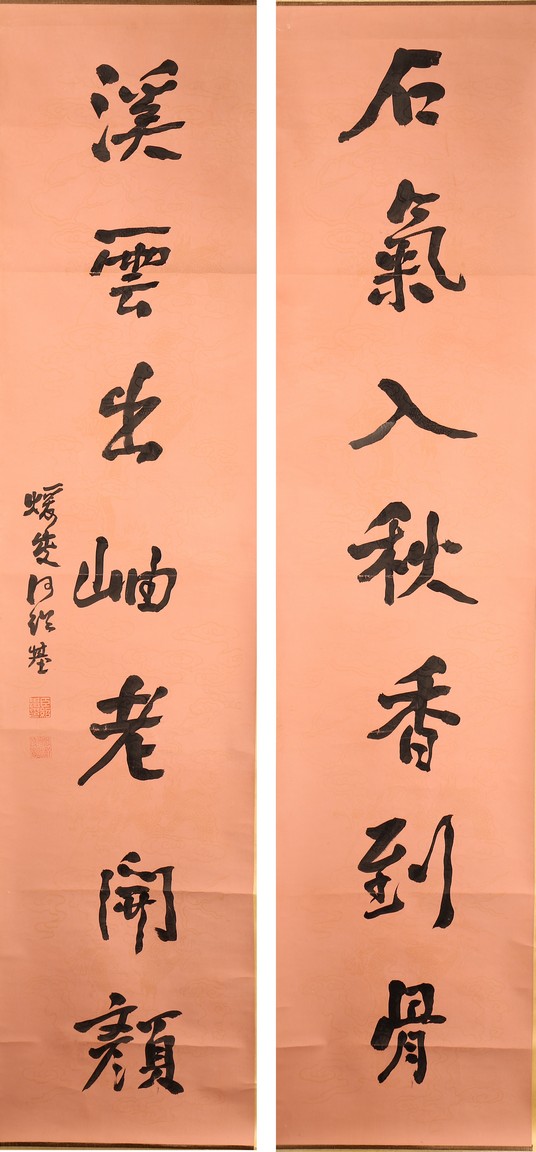 石氣入秋香到骨
溪雲出岫老開顏
媛叟何紹基